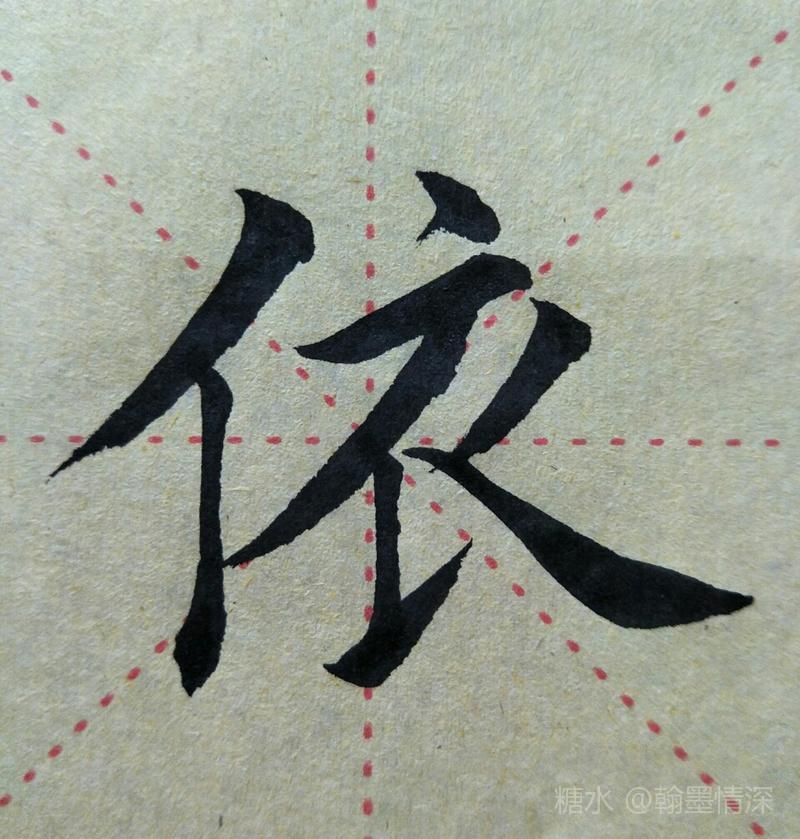 依
糖水 @翰墨情深